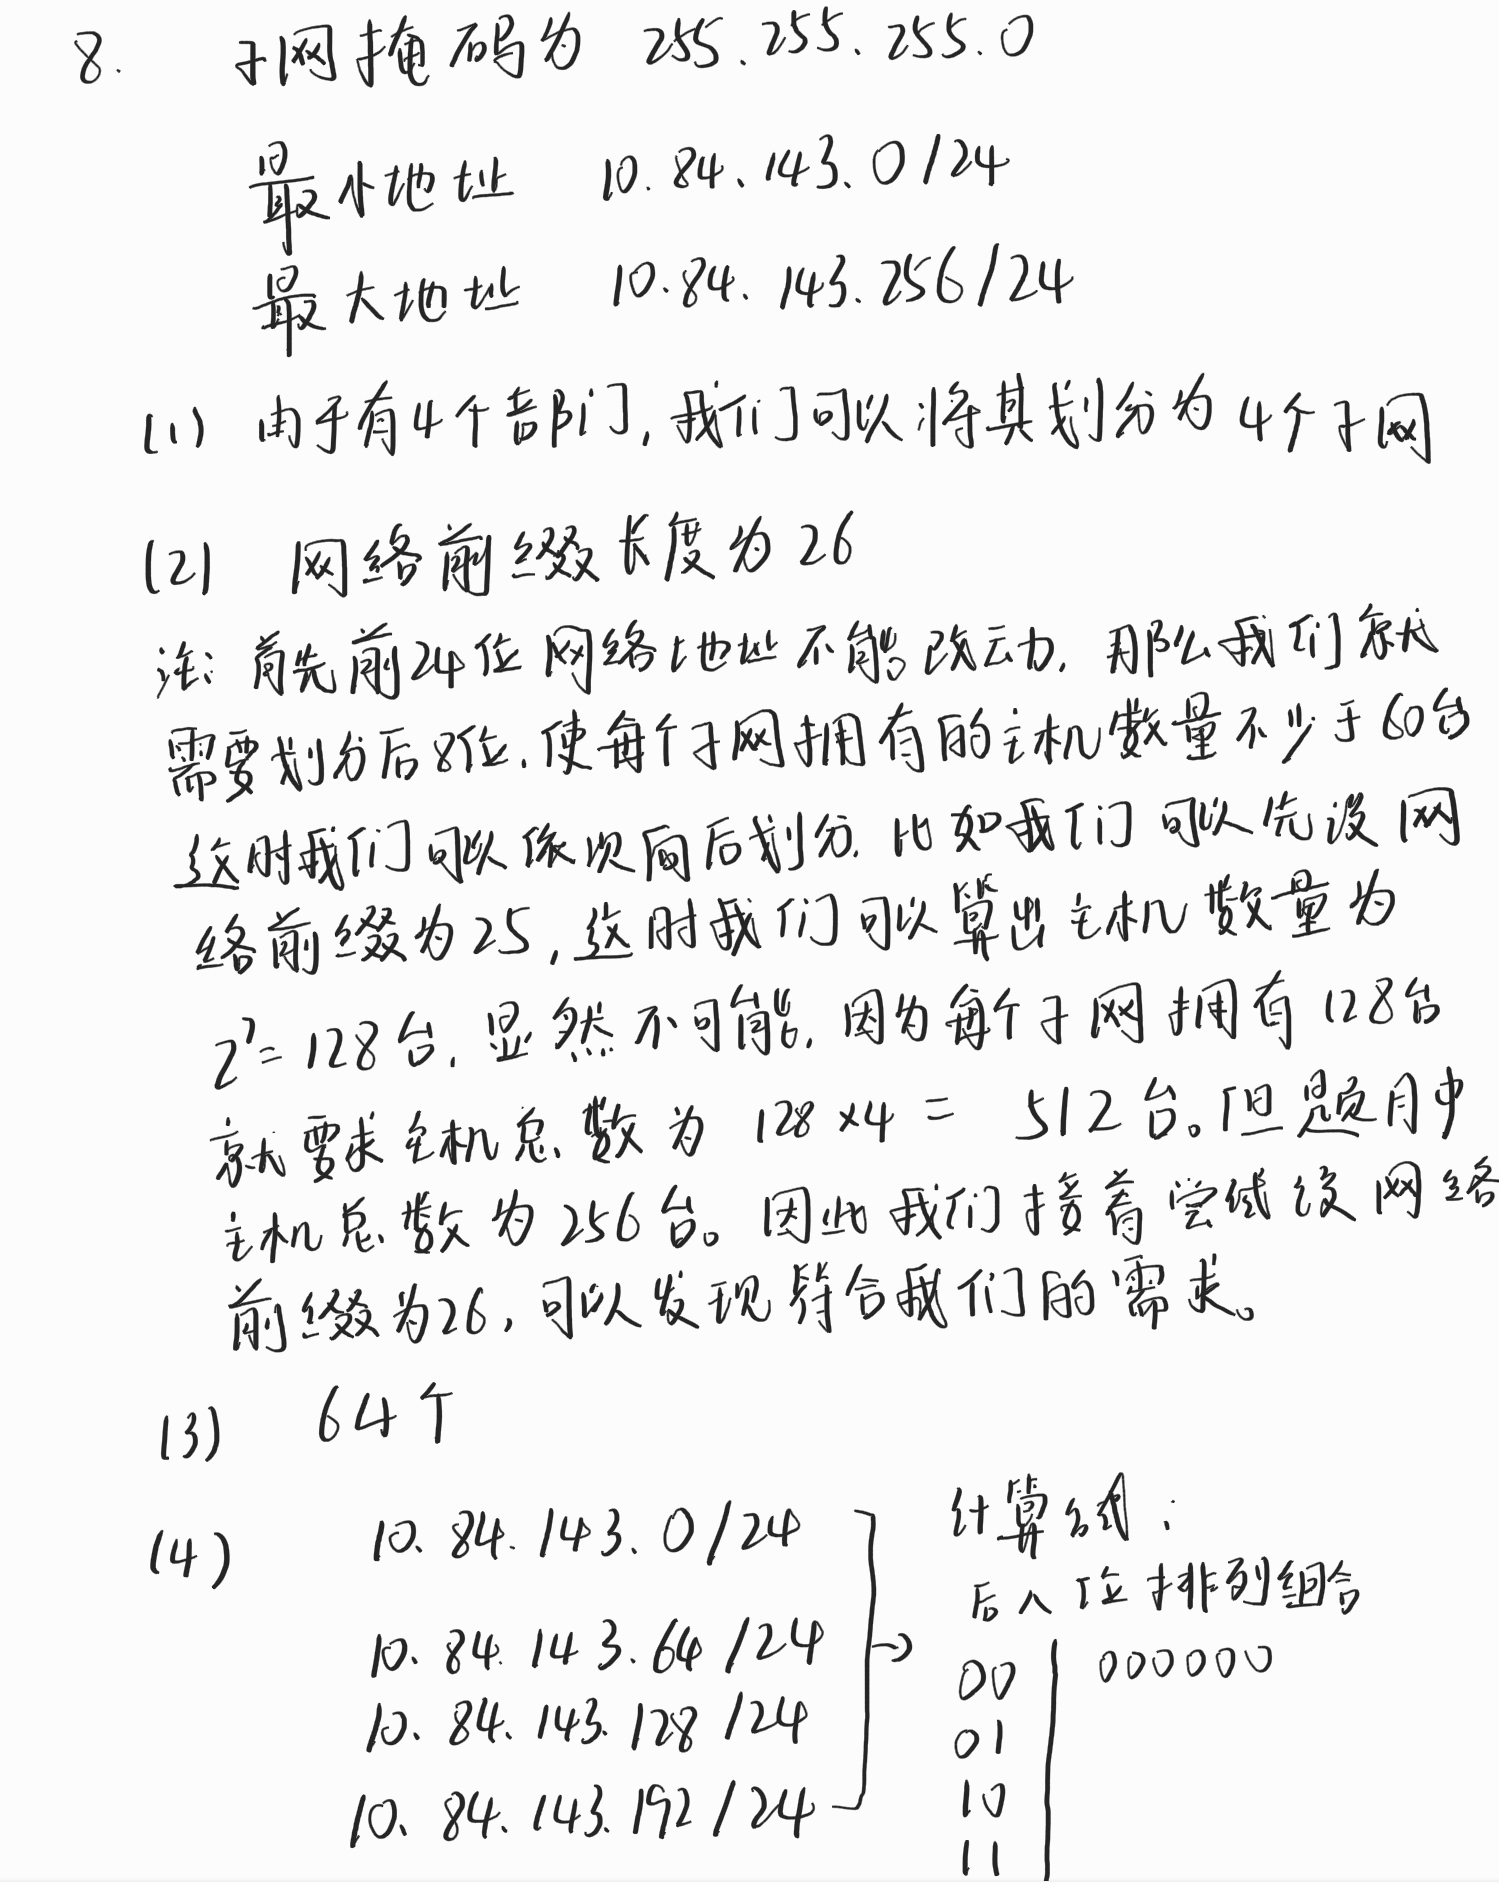 8. 子网掩码为 255.255.255.0
最小地址 10.84.143.0/24
最大地址 10.84.143.256/24
(1) 由于有4个部门,我们可以将其划分为4个子网
(2) 网络前缀长度为26
注:首先前24位网络地址不能改动,那么我们就
需要划分后8位,使每个子网拥有的主机数量不少于60台
这时我们可以依次向后划分.比如我们可以先设网
络前缀为25,这时我们可以算出主机数量为
2^7=128台.显然不可能,因为每个子网拥有128台
就要求主机总数为 128×4= 512台。但题目中
主机总数为256台。因此我们接着尝试设网络
前缀为26,可以发现符合我们的需求。
(3) 64个
(4) 10.84.143.0/24
10.84.143.64/24
10.84.143.128/24
10.84.143.192/24
计算:
后八位排列组合
00 000000
01
10
11